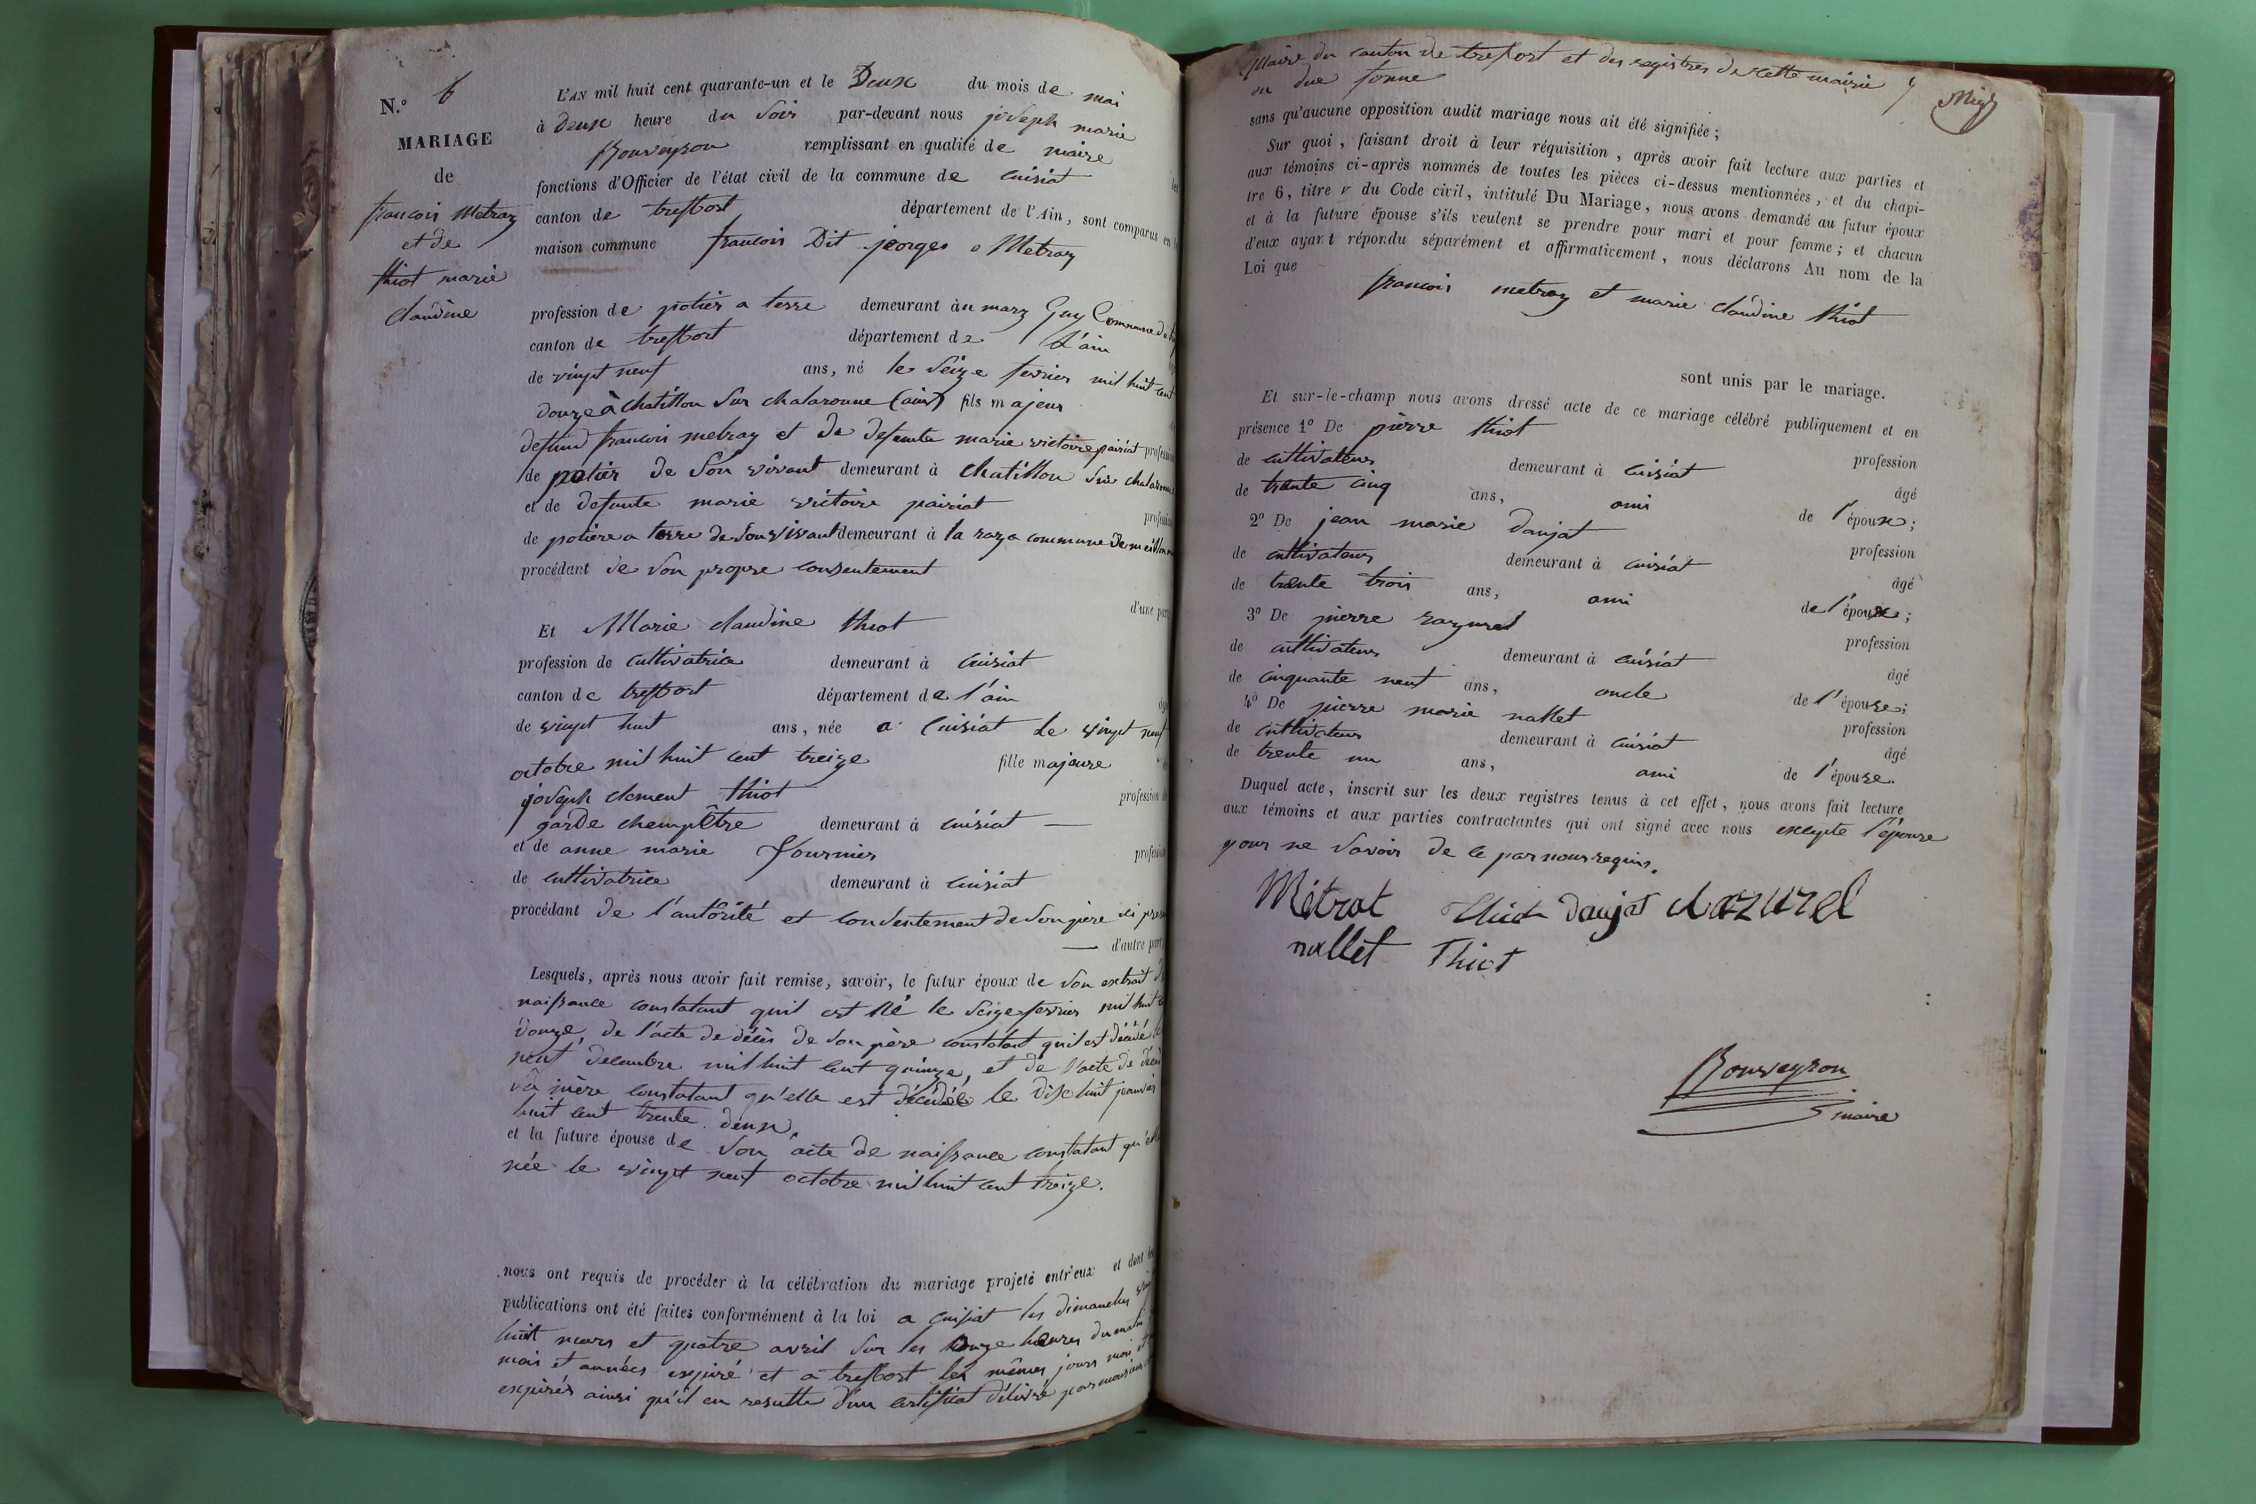 N.° 6
MARIAGE
de
francois Metray
et de
thiot marie
claudine
L'AN mil huit cent quarante-un et le Deux du mois de mai
à deux heure du Soir par-devant nous joseph marie
Bouveyron remplissant en qualité de maire les
fonctions d'Officier de l'état civil de la commune de cuisiat
canton de treffort département de l'Ain, sont comparus en la
maison commune francois Dit jeorges Metray
profession de potier a terre demeurant au mary Guy Commune de
canton de treffort département de L'ain
de vingt neuf ans, né le Seize fevrier mil huit cent
douze à chatillon Sur chalaronne (ain) fils majeur
defunt francois metray et de defunte marie victoire pairiat profession
de potier de Son vivant demeurant à chatillon Sur chalaronne
et de defunte marie victoire pairiat profession
de potiere a terre de Son vivant demeurant à la raza commune de meillonnas
procédant de Son propre consentement
d'une part
Et Marie claudine thiot
profession de cultivatrice demeurant à Cuisiat
canton de treffort département de l'ain
de vingt huit ans, née a Cuisiat Le vingt neuf
octobre mil huit cent treize fille majeure
joseph clement thiot profession de
garde champêtre demeurant à cuisiat —
et de anne marie fournier profession
de cultivatrice demeurant à Cuisiat
procédant de l'autorité et consentement de Son père ici present
— d'autre part
Lesquels, après nous avoir fait remise, savoir, le futur époux de Son extrait de
naissance constatant quil est Né le Seize fevrier mil huit
douze, de l'acte de décès de Son père constatant qu'il est décédé le
neuf decembre mil huit cent quinze, et de l'acte de décès
mère constatant qu'elle est décédée le dix huit jeanvier
huit cent trente deux,
et la future épouse de Son acte de naissance constatant qu'elle
née le vingt neuf octobre mil huit cent treize.
nous ont requis de procéder à la célébration du mariage projeté entr'eux et dont les
publications ont été faites conformément à la loi a cuisiat les dimanches vingt
huit mars et quatre avril Sur les onze heures du matin
mois et années expiré et a treffort les mêmes jours mois et
expirés ainsi qu'il en resulte d'un certificat délivré par
Maire du canton de treffort et des registres de cette mairie
en due forme
sans qu'aucune opposition audit mariage nous ait été signifiée ;
Sur quoi, faisant droit à leur réquisition, après avoir fait lecture aux parties et
aux témoins ci-après nommés de toutes les pièces ci-dessus mentionnées, et du chapi-
tre 6, titre v du Code civil, intitulé Du Mariage, nous avons demandé au futur époux
et à la future épouse s'ils veulent se prendre pour mari et pour femme; et chacun
d'eux ayant répondu séparément et affirmativement, nous déclarons Au nom de la
Loi que
francois metray et marie claudine thiot
sont unis par le mariage.
Et sur-le-champ nous avons dressé acte de ce mariage célébré publiquement et en
présence 1° De pierre thiot profession
de cultivateur demeurant à cuisiat âgé
de trente cinq ans, ami de l'époux;
2° De jean marie daujat profession
de cultivateur demeurant à cuisiat âgé
de trente trois ans, ami de l'époux;
3° De pierre razurel profession
de cultivateur demeurant à cuisiat âgé
de cinquante neuf ans, oncle de l'épouse;
4° De pierre marie nallet profession
de cultivateur demeurant à cuisiat âgé
de trente un ans, ami de l'épouse.
Duquel acte, inscrit sur les deux registres tenus à cet effet, nous avons fait lecture
aux témoins et aux parties contractantes qui ont signé avec nous excepte l'épouse
pour ne Savoir de ce par nous requis.
Métrat Thiot Daujat Razurel
nallet Thiot
Bouveyron
maire